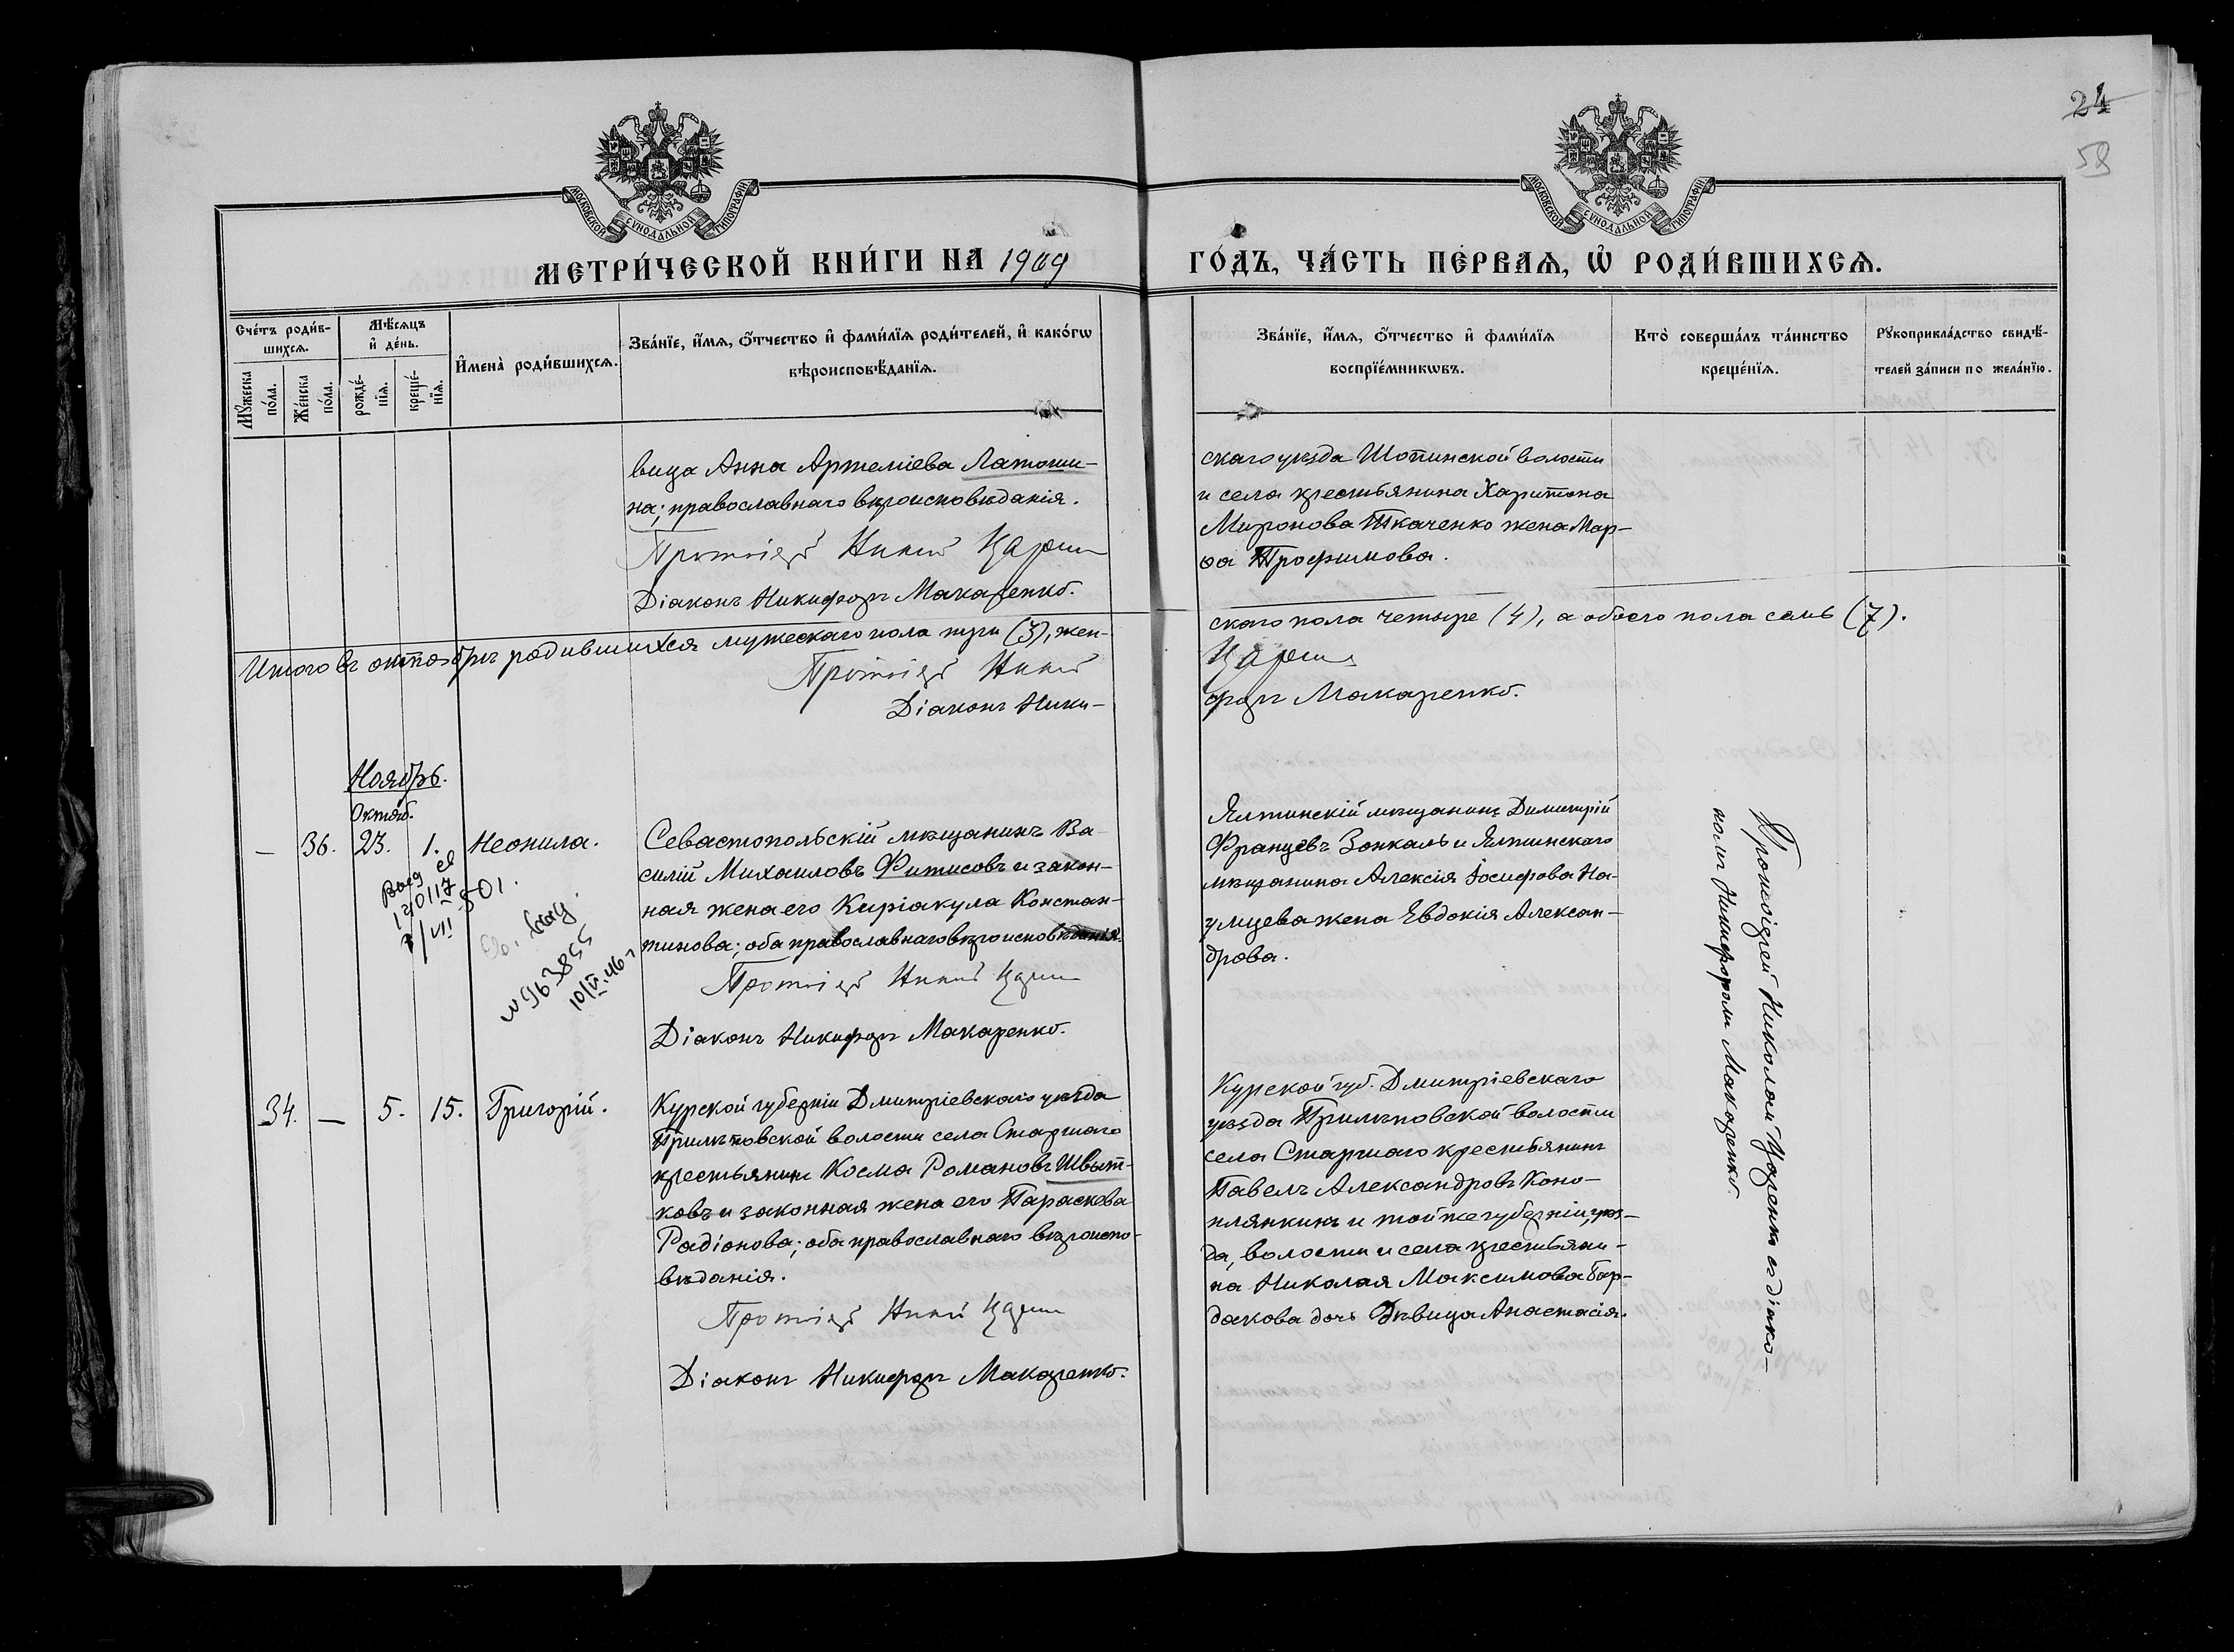 24
58
МОСКОВСКОЙ СѴНОДАЛЬНОЙ ТИПОГРАФІИ.
МОСКОВСКОЙ СѴНОДАЛЬНОЙ ТИПОГРАФІИ.
МЕТРИ́ЧЕСКОЙ КНИ́ГИ НА 1909
ГО́ДЪ, ЧА́СТЬ ПЕ́РВАѦ, Ѽ РОДИ́ВШИХСѦ.
Сче́тъ роди́в-
шихсѧ.
Мѣ́сѧцъ
и҆ де́нь.
Мꙋ́жеска
по́ла.
Же́нска
по́ла.
рожде́-
нїѧ.
креще́-
нїѧ.
И҆мена̀ роди́вшихсѧ.
Зва́нїе, и҆́мѧ, ѻ҆́тчество и҆ фами́лїѧ роди́телей, и҆ како́гѡ
вѣроисповѣ́данїѧ.
Зва́нїе, и҆́мѧ, ѻ҆́тчество и҆ фами́лїѧ
воспрїе́мникѡвъ.
Кто̀ соверша́лъ та́инство
креще́нїѧ.
Рꙋкоприкла́дство свидѣ́-
телей за́писи по жела́нїю.
вица Анна Артеміева Латоши-
на; православнаго вѣроисповѣданія.
Протоіерей Николай Царенко
Діаконъ Никифоръ Макаренко.
скаго уѣзда Шопинской волости
и села крестьянина Харитона
Миронова Ткаченко жена Мар-
ѳа Трофимова.
Итого въ октябрѣ родившихся мужескаго пола три (3), жен-
скаго пола четыре (4), а обоего пола семь (7).
Протоіерей Николай
Царенко
Діаконъ Ники-
форъ Макаренко.
Ноябрь.
Октяб.
— 36. 23. 1. Неонила.
Севастопольскій мѣщанинъ Ва-
силій Михаиловъ Фитисовъ и закон-
ная жена его Киріакула Констан-
тинова; оба православнаго вѣроисповѣданія.
Протоіерей Николай Царенко
Діаконъ Никифоръ Макаренко.
120117
7/VII
501.
N 963855
10/VI.46 г
Ялтинскій мѣщанинъ Димитрій
Францевъ Зонкаль и Ялтинскаго
мѣщанина Алексія Іосифова На-
умцева жена Евдокія Алексан-
дрова.
Протоіерей Николай Царенко съ діако-
номъ Никифоромъ Макаренко.
34. — 5. 15. Григорій.
Курской губерніи Дмитріевскаго уѣзда
Прилѣповской волости села Старшаго
крестьянинъ Косма Романовъ Швыт-
ковъ и законная жена его Параскева
Радіонова; оба православнаго вѣроиспо-
вѣданія.
Протоіерей Николай Царенко
Діаконъ Никифоръ Макаренко.
Курской губ. Дмитріевскаго
уѣзда Прилѣповской волости
села Старшаго крестьянинъ
Павелъ Александровъ Коно-
плянкинъ и той же губерніи, уѣз-
да, волости и села крестьяни-
на Николая Максимова Бар-
дакова дочь дѣвица Анастасія.